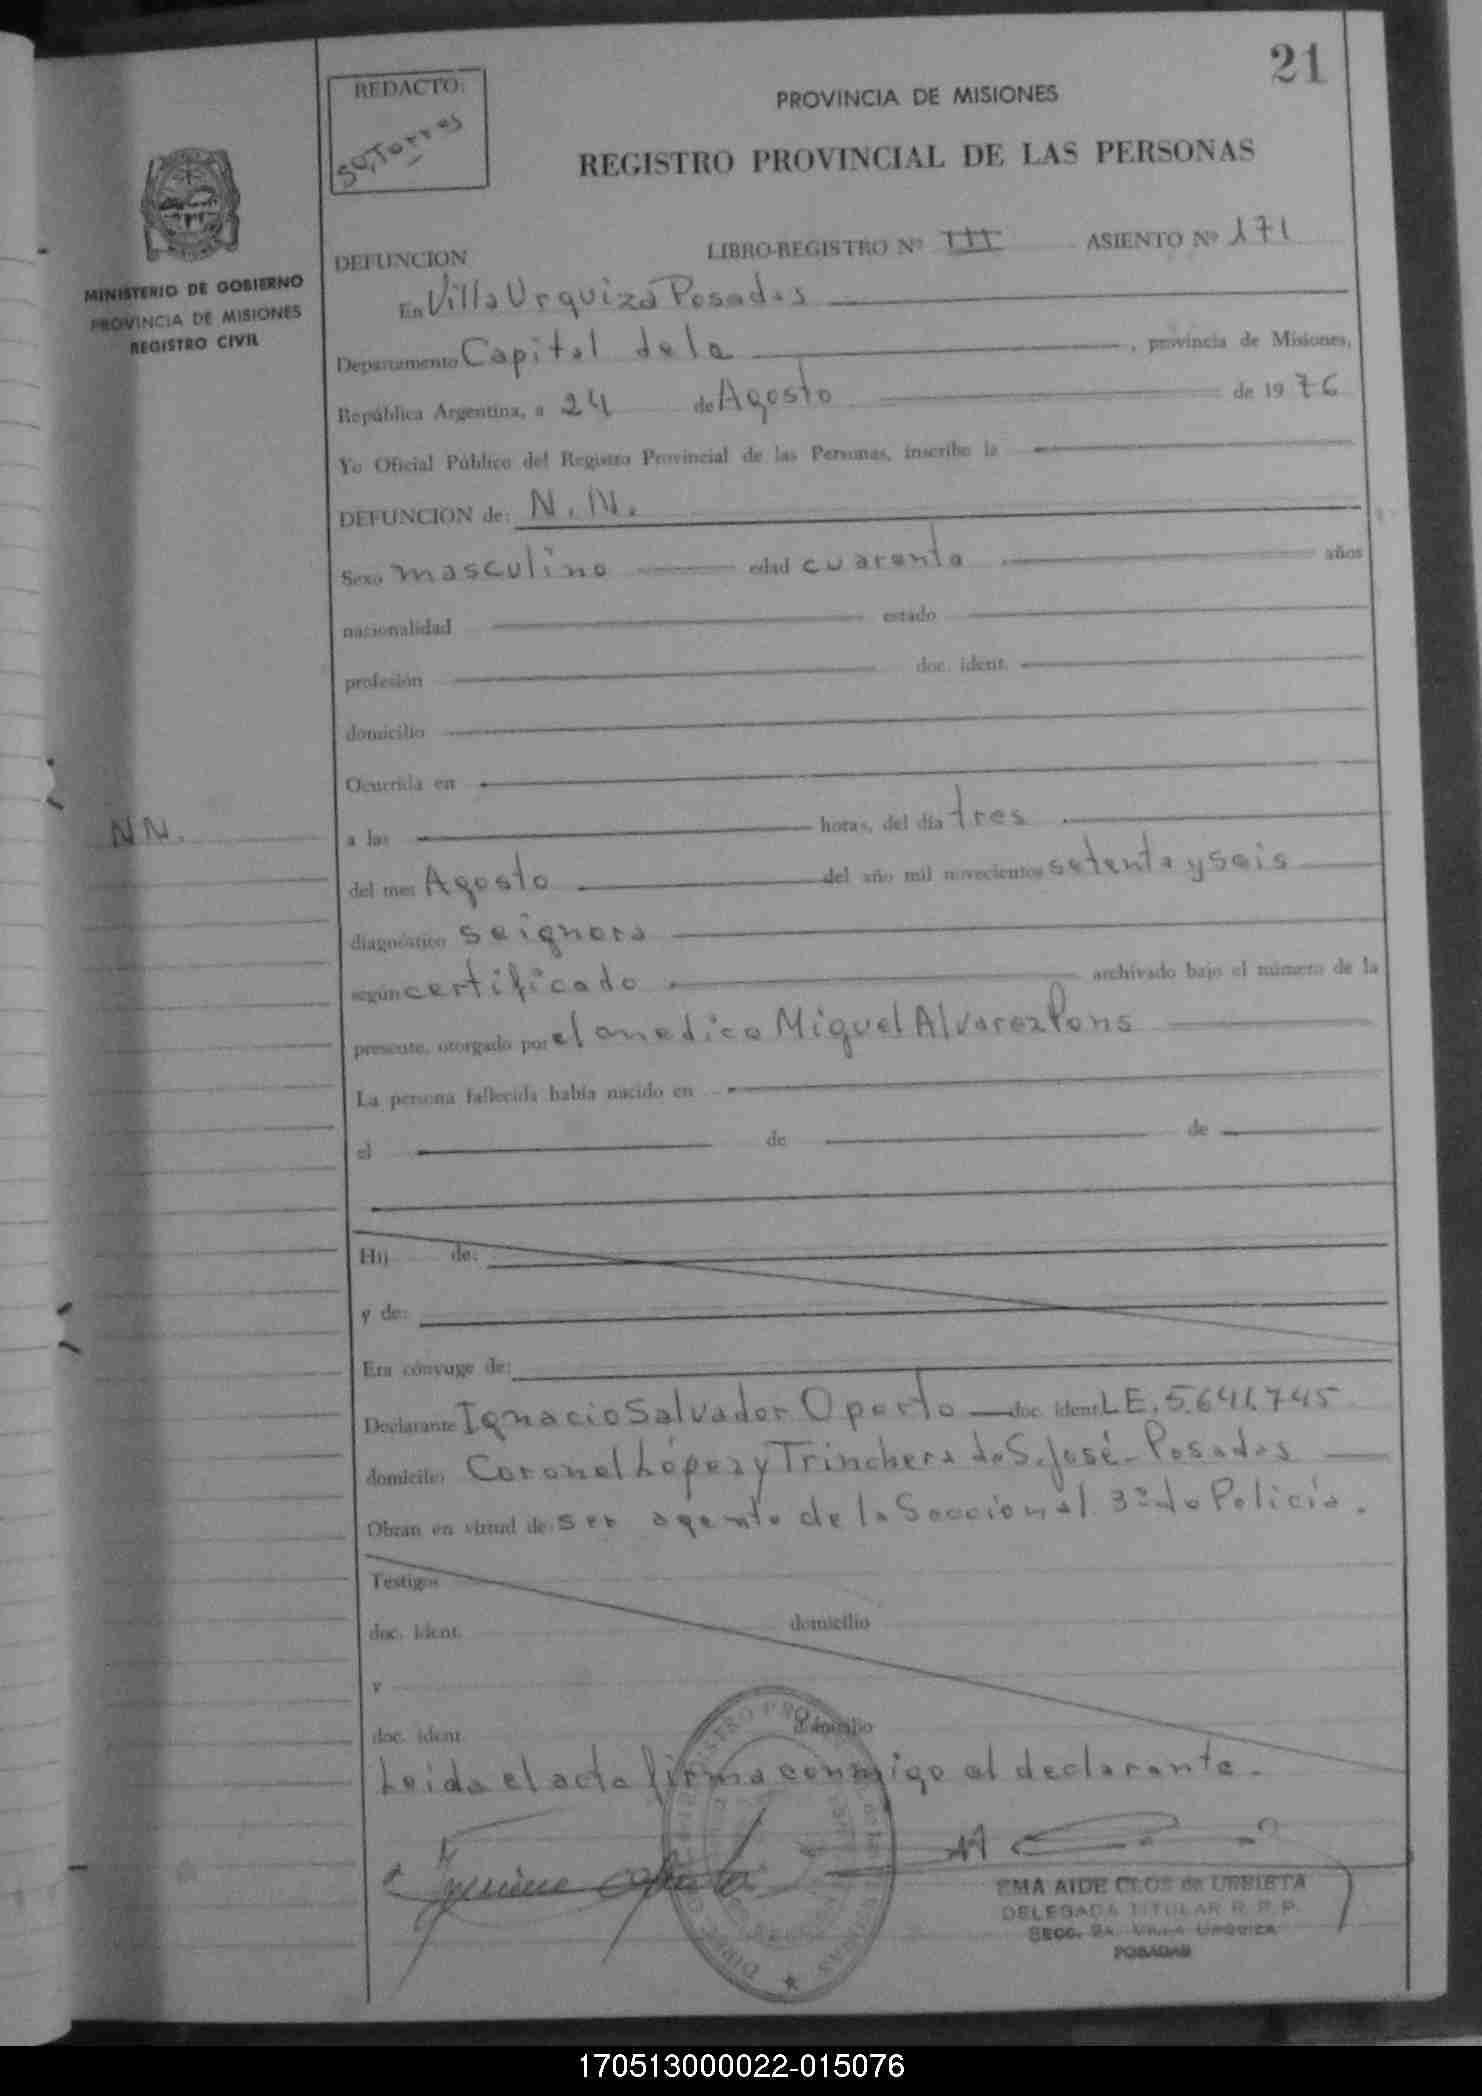 21
REDACTO:
PROVINCIA DE MISIONES
REGISTRO PROVINCIAL DE LAS PERSONAS
MINISTERIO DE GOBIERNO
PROVINCIA DE MISIONES
REGISTRO CIVIL
DEFUNCION LIBRO-REGISTRO Nº III ASIENTO Nº 171
En Villa Urquiza Posadas
Departamento Capital de la , provincia de Misiones,
República Argentina, a 24 de Agosto de 1976
Yo Oficial Público del Registro Provincial de las Personas, inscribo la
DEFUNCION de: N.N.
Sexo masculino edad cuarenta años
nacionalidad estado
profesión doc. ident.
domicilio
Ocurrida en
NN.
a las horas, del día tres
del mes Agosto del año mil novecientos setenta y seis
diagnóstico se ignora
según certificado archivado bajo el número de la
presente, otorgado por el medico Miguel Alvarez Pons
La persona fallecida había nacido en
el de de
Hij de:
y de:
Era cónyuge de:
Declarante Ignacio Salvador Oporto doc. ident. L E. 5.641.745
domicilio Coronel López y Trinchera de S. José - Posadas
Obran en virtud de ser agente de la Seccional 3ª de Policía.
Testigos
doc. ident. domicilio
y
doc. ident. domicilio
Leida el acta firma conmigo el declarante.
EMA AIDE CLOS de URBIETA
DELEGADA TITULAR R. P. P.
SECC. VILLA URQUIZA
POSADAS
170513000022-015076